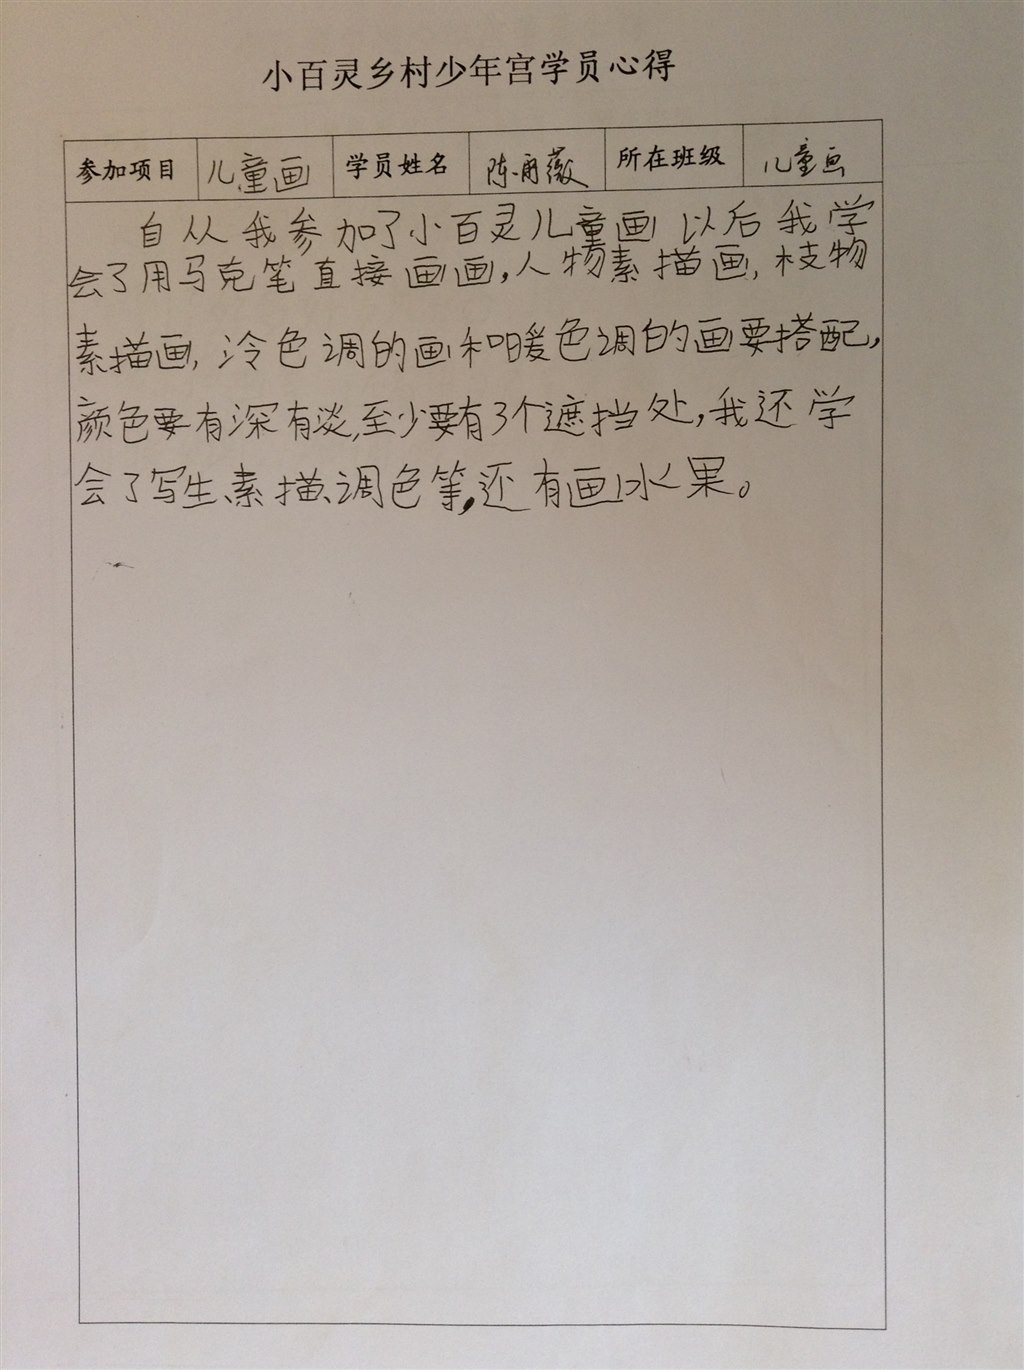 小百灵乡村少年宫学员心得
参加项目 儿童画 学员姓名 陈雨薇 所在班级 儿童画
自从我参加了小百灵儿童画以后我学
会了用马克笔直接画画,人物素描画,枝物
素描画,冷色调的画和暖色调的画要搭配,
颜色要有深有淡,至少要有3个遮挡处,我还学
会了写生、素描、调色等,还有画水果。